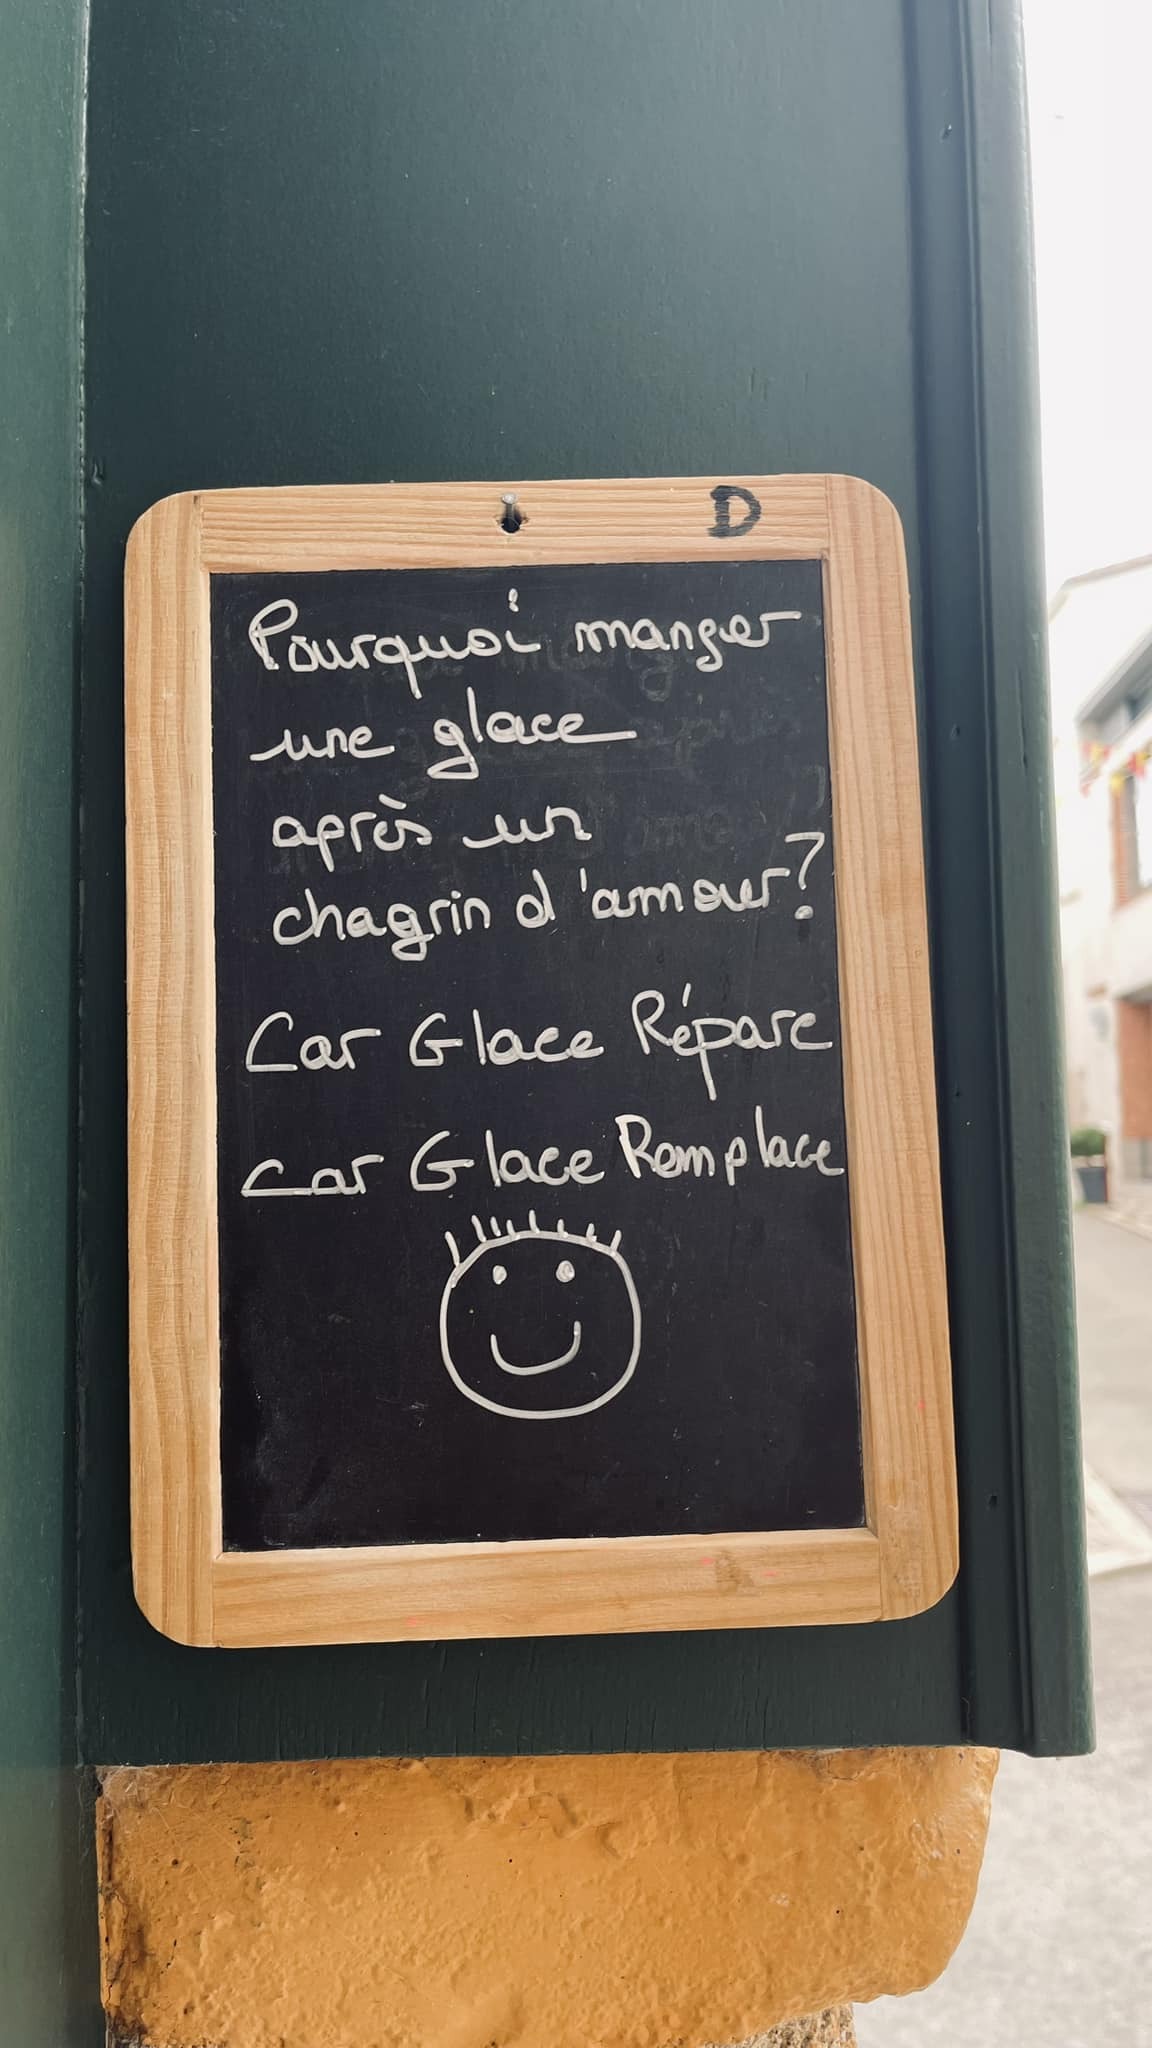 D
Pourquoi manger
une glace
après un
chagrin d'amour?
Car Glace Répare
Car Glace Remplace